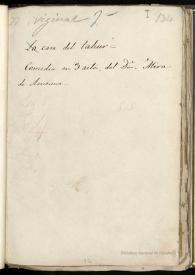 original
I
La casa del tahur
Comedia en 3 actos, del Dr. Mira
de Amescua
4
Biblioteca Nacional de España